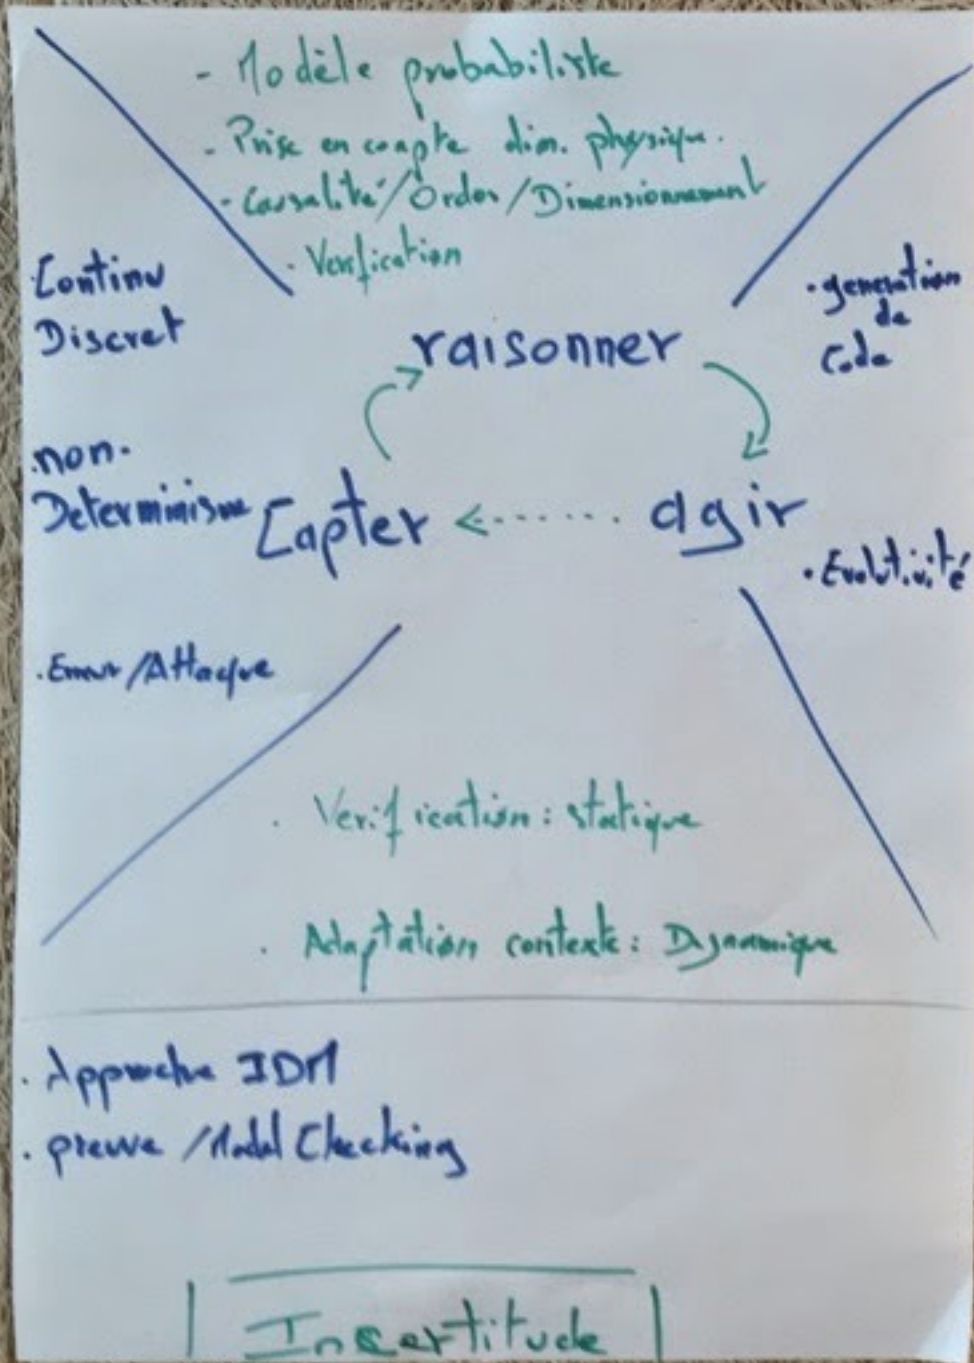 - Modèle probabiliste
- Prise en compte dim. physique.
- Causalité/Ordon/Dimensionnement
. Verification
. Continu
Discret
. generation
de
Code
raisonner
. non.
Determinisme
Capter
agir
. Evolutivité
. Erreur/Attaque
. Verification : statique
. Adaptation contexte : Dynamique
. Approche IDM
. preuve /Model Checking
Incertitude